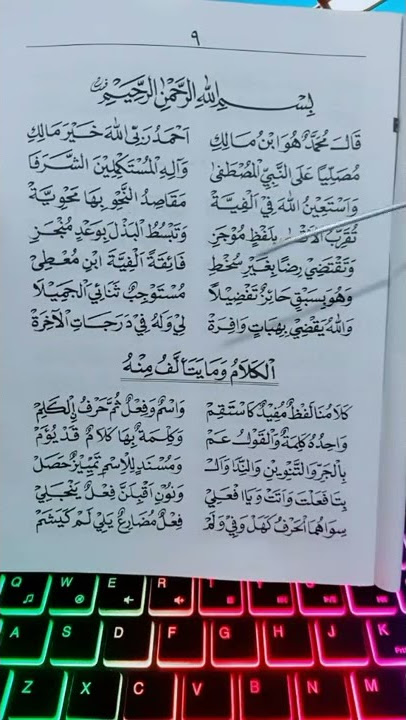 ٩
بِسْــمِ اللهِ الرَّحْمٰنِ الرَّحِيْمِ
قَالَ مُحَمَّدٌ هُوَ ابْنُ مَالِكِ اَحْمَدُ رَبِّى اللهَ خَيْرَ مَالِكِ
مُصَلِّيًا عَلَى النَّبِيِّ الْمُصْطَفٰى وَآلِهِ الْمُسْتَكْمِلِيْنَ الشَّرَفَا
وَاَسْتَعِيْنُ اللهَ فِيْ اَلْفِيَّهْ مَقَاصِدُ النَّحْوِ بِهَا مَحْوِيَّهْ
تُقَرِّبُ الْاَقْصٰى بِلَفْظٍ مُوْجَزِ وَتَبْسُطُ الْبَذْلَ بِوَعْدٍ مُنْجَزِ
وَتَقْتَضِيْ رِضًا بِغَيْرِ سُخْطِ فَائِقَةً اَلْفِيَّةَ ابْنِ مُعْطِيْ
وَهُوَ بِسَبْقٍ حَائِزٌ تَفْضِيْلًا مُسْتَوْجِبٌ ثَنَائِيَ الْجَمِيْلَا
وَاللهُ يَقْضِيْ بِهِبَاتٍ وَافِرَةْ لِيْ وَلَهُ فِيْ دَرَجَاتِ الْآخِرَةْ
اَلْكَلَامُ وَمَا يَتَأَلَّفُ مِنْهُ
كَلَامُنَا لَفْظٌ مُفِيْدٌ كَاسْتَقِمْ وَاسْمٌ وَفِعْلٌ ثُمَّ حَرْفٌ اِلْكَلِمْ
وَاحِدُهُ كَلِمَةٌ وَالْقَوْلُ عَمْ وَكَلِمَةٌ بِهَا كَلَامٌ قَدْ يُؤَمْ
بِالْجَرِّ وَالتَّنْوِيْنِ وَالنِّدَا وَالْ وَمُسْنَدٍ لِلْاِسْمِ تَمْيِيْزٌ حَصَلْ
بِتَا فَعَلْتَ وَاَتَتْ وَيَا افْعَلِيْ وَنُوْنِ اَقْبِلَنَّ فِعْلٌ يَنْجَلِيْ
سِوَاهُمَا الْحَرْفُ كَهَلْ وَفِيْ وَلَمْ فِعْلٌ مُضَارِعٌ يَلِيْ لَمْ كَيَشَمْ
Q W E R T Y
A S D F G H J K
Z X C V B N M